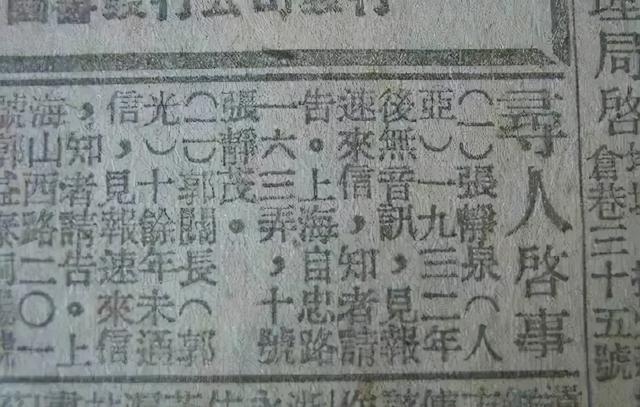 理局啓
倉巷三十五號
尋人啓事
（一）張靜泉（人
亞）一九三二年
後無音訊，見報
速來信，知者請
告。上海自忠路
一六三弄，十號
張靜茂。
（二）郭闊長（郭
光）十餘年未通
信，見報速來信
，知者請告。上
海山西路二〇一
號郭